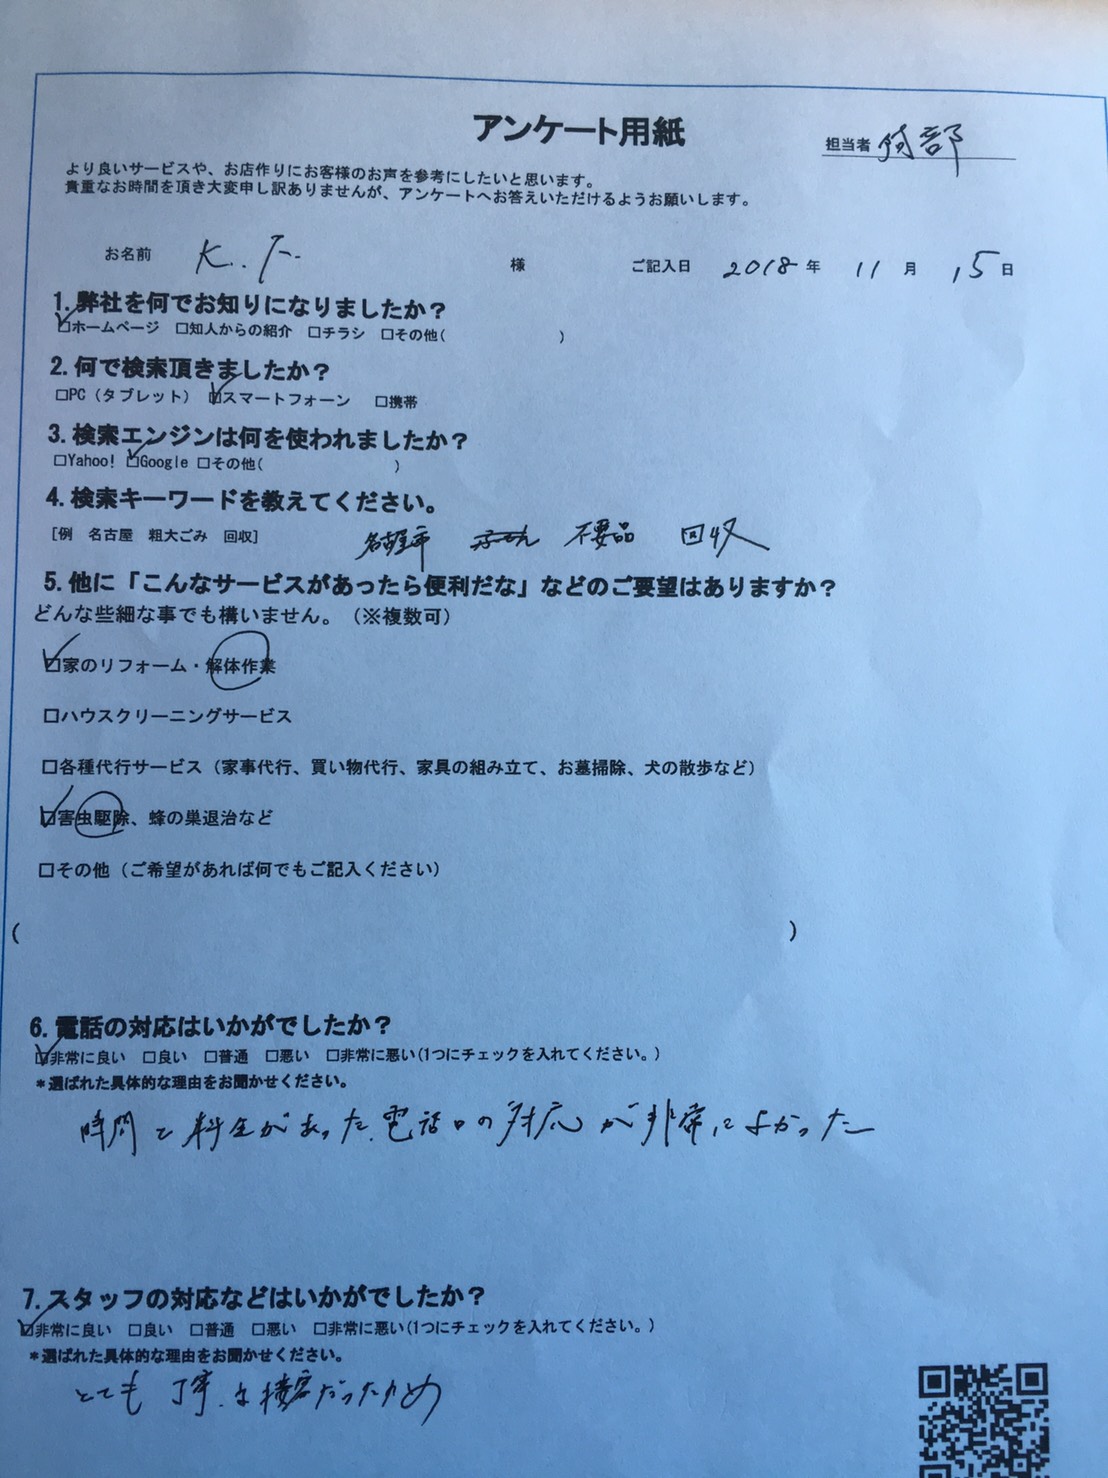 アンケート用紙
担当者 阿部
より良いサービスや、お店作りにお客様のお声を参考にしたいと思います。
貴重なお時間を頂き大変申し訳ありませんが、アンケートへお答えいただけるようお願いします。
お名前 K.T. 様 ご記入日 2018年 11月 15日
1.弊社を何でお知りになりましたか？
☑ホームページ □知人からの紹介 □チラシ □その他( )
2.何で検索頂きましたか？
□PC（タブレット） ☑スマートフォーン □携帯
3.検索エンジンは何を使われましたか？
□Yahoo! ☑Google □その他( )
4.検索キーワードを教えてください。
[例 名古屋 粗大ごみ 回収] 名古屋市 不要品 回収
5.他に「こんなサービスがあったら便利だな」などのご要望はありますか？
どんな些細な事でも構いません。（※複数可）
☑家のリフォーム・解体作業
□ハウスクリーニングサービス
□各種代行サービス（家事代行、買い物代行、家具の組み立て、お墓掃除、犬の散歩など）
☑害虫駆除、蜂の巣退治など
□その他（ご希望があれば何でもご記入ください）
( )
6.電話の対応はいかがでしたか？
☑非常に良い □良い □普通 □悪い □非常に悪い(1つにチェックを入れてください。)
*選ばれた具体的な理由をお聞かせください。
時間と料金があった、電話口の対応が非常によかった
7.スタッフの対応などはいかがでしたか？
☑非常に良い □良い □普通 □悪い □非常に悪い(1つにチェックを入れてください。)
*選ばれた具体的な理由をお聞かせください。
とても丁寧な接客だったため